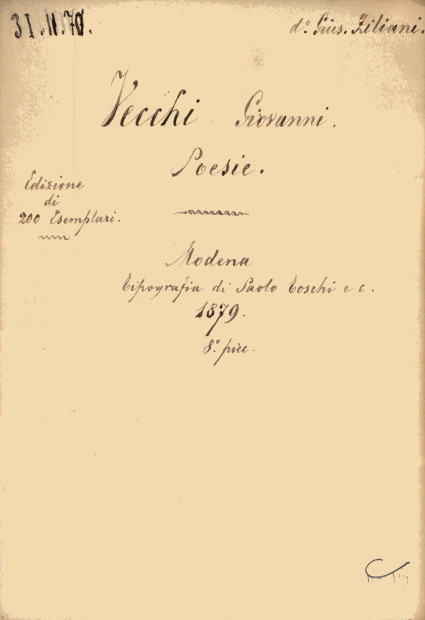 31.11.70.
d.º Gius. Ziliani.
Vecchi Giovanni.
Poesie.
Edizione
di
200 Esemplari.
Modena
Tipografia di Paolo Toschi e c.
1879.
8.º picc.